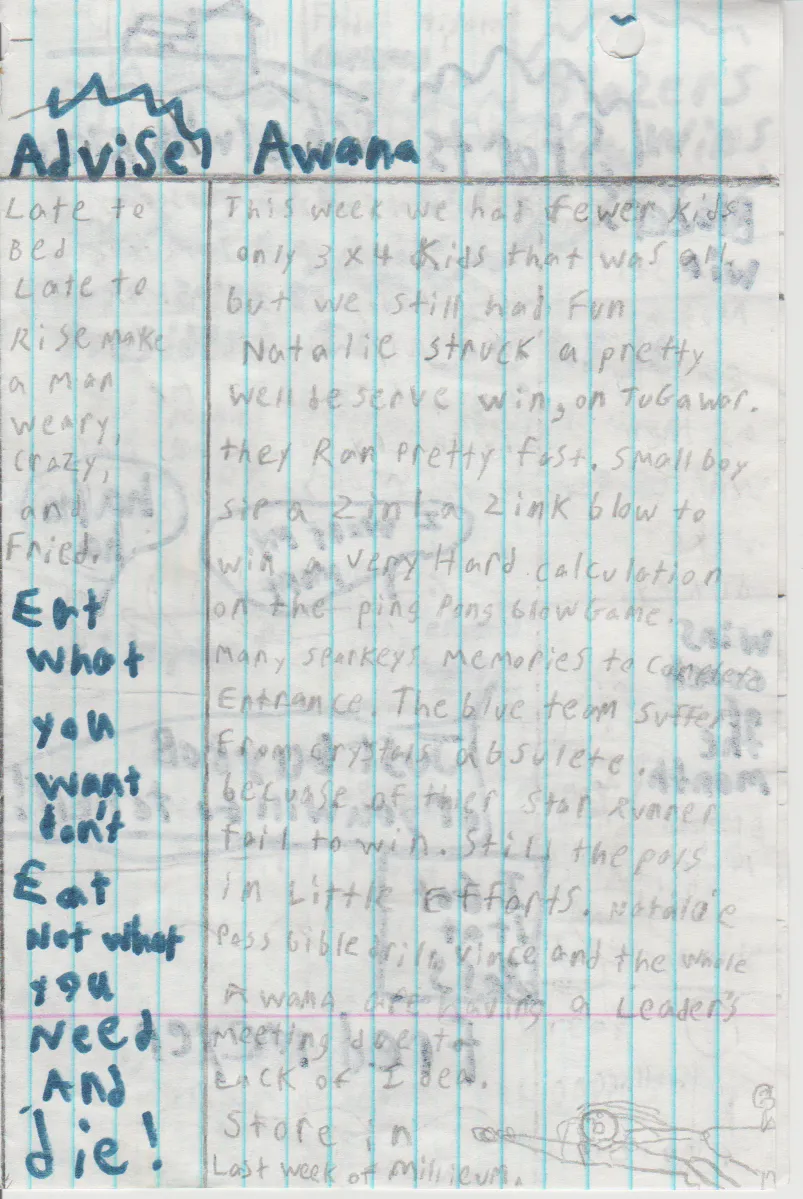 Advise
Late to
Bed
Late to
Rise make
a man
weary,
crazy,
and
Fried.
Eat
what
you
want
don't
Eat
Not what
you
Need
And
die!
Awana
This week we had fewer kids.
only 3 x 4 Kids that was all.
but we still had Fun
Natalie struck a pretty
well deserve win, on TuGawar.
they Ran pretty fast. Small boy
a 2 in 1 a 2 ink blow to
win a very Hard calculation
on the ping Pong blow Game.
Many sparkeys memories to
Entrance. The blue team suffer
From crystals absulete.
becuase of thier Star Runner
fail to win. Still the pass
in Little Efforts. Natalie
Pass bible drill, Vince and the whole
Awana are having a Leader's
meeting due to
Lack of Idea.
Store in
Last week of Millieum.